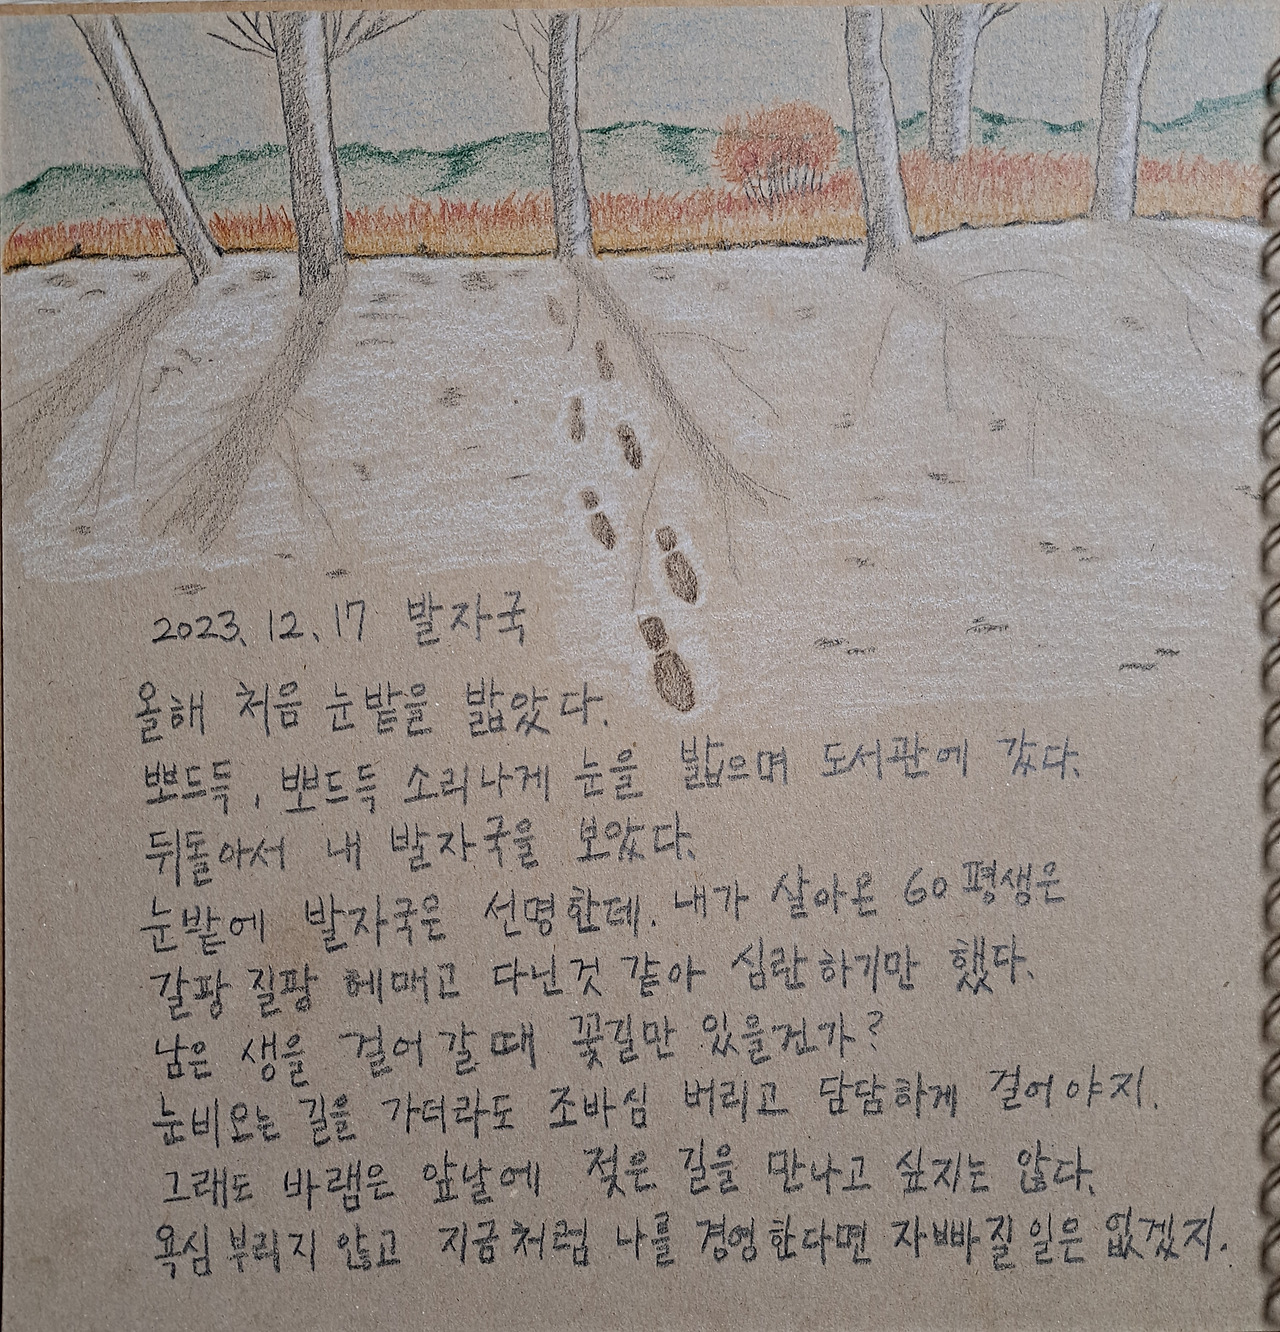 2023. 12. 17 발자국
올해 처음 눈밭을 밟았다.
뽀드득, 뽀드득 소리나게 눈을 밟으며 도서관에 갔다.
뒤돌아서 내 발자국을 보았다.
눈밭에 발자국은 선명한데. 내가 살아온 60평생은
갈팡 질팡 헤매고 다닌것 같아 심란하기만 했다.
남은 생을 걸어갈때 꽃길만 있을건가?
눈비오는 길을 가더라도 조바심 버리고 담담하게 걸어야지.
그래도 바램은 앞날에 젖은 길을 만나고 싶지는 않다.
욕심부리지 않고 지금처럼 나를 경영한다면 자빠질일은 없겠지.